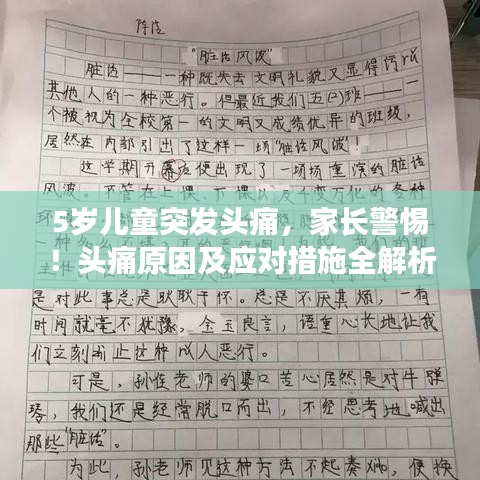 陈浩
“脏话风波”
脏话——一种既失去文明礼貌又显得污
其他人的一种恶行。但最近我们五(2)班——一
个被视为全校第一的文明又成绩优异的班级,
居然在内部引出了这样一场“脏话风波”。
这学期开幕后便出现了一场场重演的脏话
风波。不管在上课、下课
千变万化的各种
5岁儿童突发头痛，家长警惕
！头痛原因及应对措施全解析
是对此事总是耿耿于怀。总是不厌其烦，一有
时间就毫不犹豫，金玉良言，语重心长地让我
们立刻制止这种
人恶行。
可是，孙佳老师的婆口苦心居然是对牛弹
琴，我们还是经常脱口而出，不经思考地喊出
那些“脏话”。
为此，孙老师见这种方法不起奏效，便换